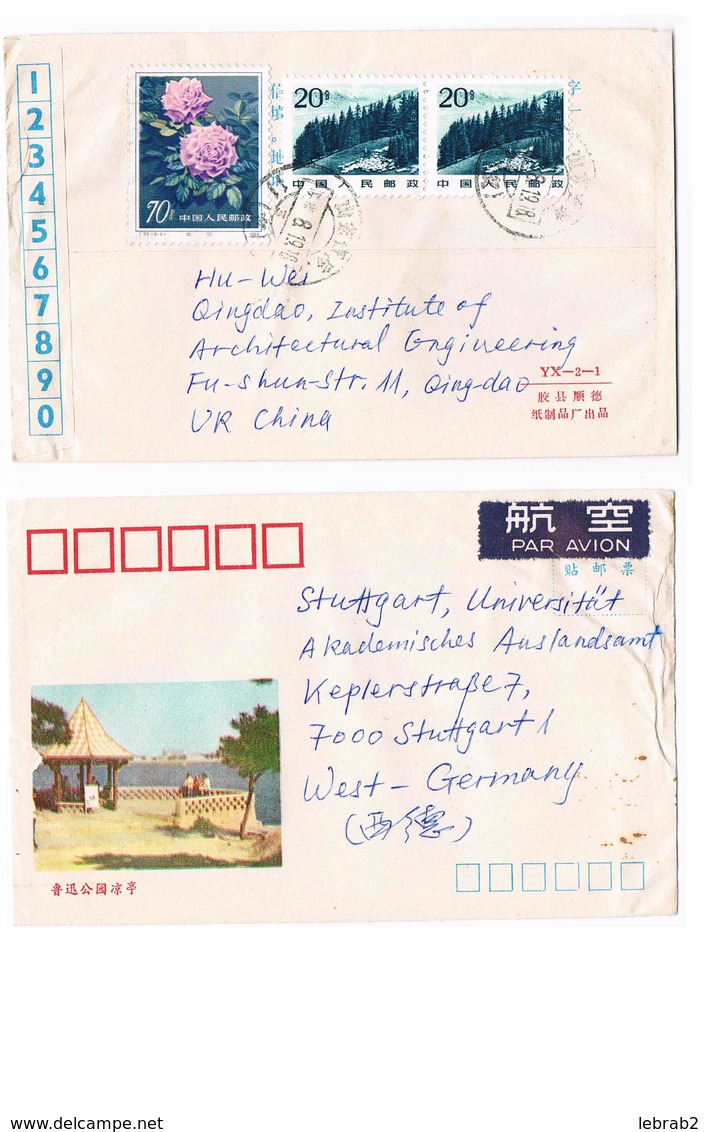 1
2
3
4
5
6
7
8
9
0
信
填
。
地
字
一
70分 中国人民邮政
20分
中国人民邮政
20分
中国人民邮政
Hu-Wei
Qingdao, Institute of
Architectural Engineering
Fu-shun-Str. 11, Qing-dao
VR China
YX—2—1
胶县顺德
纸制品厂出品
航空
PAR AVION
贴邮票
Stuttgart, Universität
Akademisches Auslandsamt
Keplerstraße 7,
7000 Stuttgart 1
West-Germany
(西德)
鲁迅公园凉亭
www.delcampe.net
lebrab2